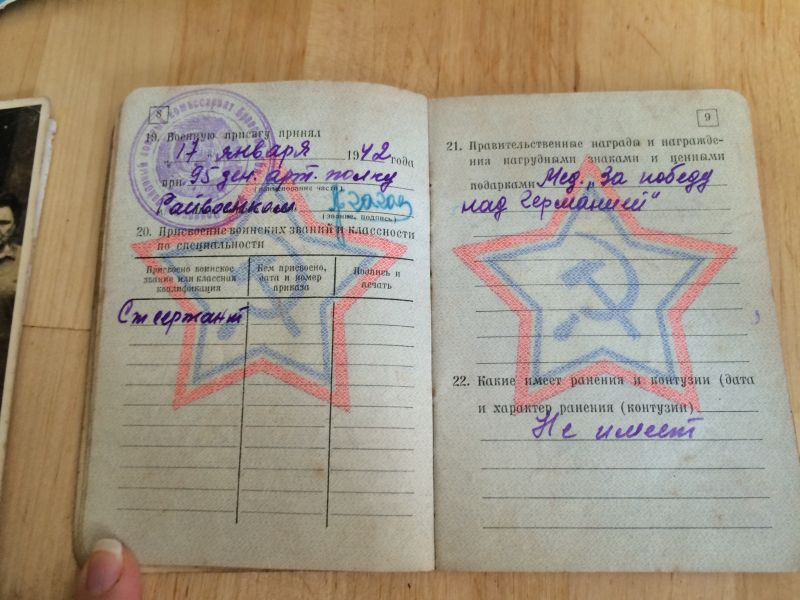 8
19. Военную присягу принял
„17" января 1942 года
при 95 ден. арт. полку
(наименование части)
Райвоенком
(звание, подпись)
20. Присвоение воинских званий и классности
по специальности
Присвоено воинское
звание или классная
квалификация
Кем присвоено,
дата и номер
приказа
Подпись и
печать
Ст сержант
9
21. Правительственные награды и награжде-
ния нагрудными знаками и ценными
подарками Мед. „За победу
над Германией"
22. Какие имеет ранения и контузии (дата
и характер ранения (контузии)
Не имеет